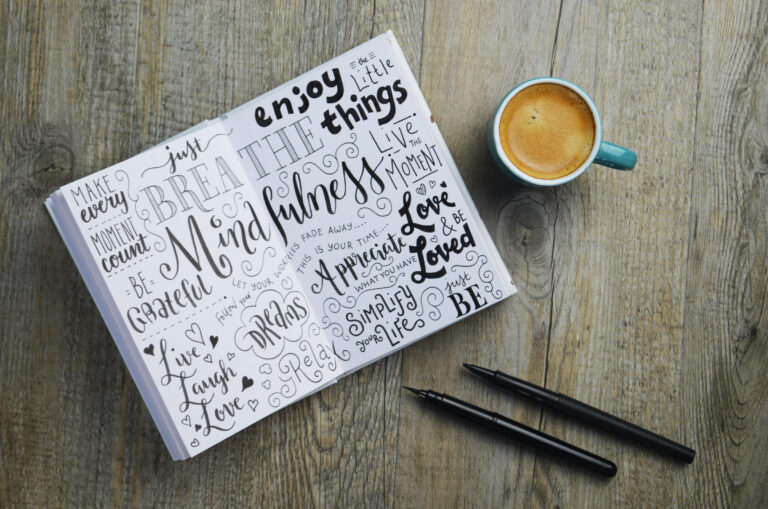 MAKE
every
MOMENT
count
just
BREATHE
Mindfulness
BE
Grateful
LET YOUR WORRIES FADE AWAY....
THIS IS YOUR TIME...
Follow your
DREAMS
Live
Laugh
Love
Relax
enjoy
the
Little
things
LIVE
THE
MOMENT
Love
& BE
Loved
Appreciate
WHAT YOU HAVE
Simplify
YOUR
Life
just
BE